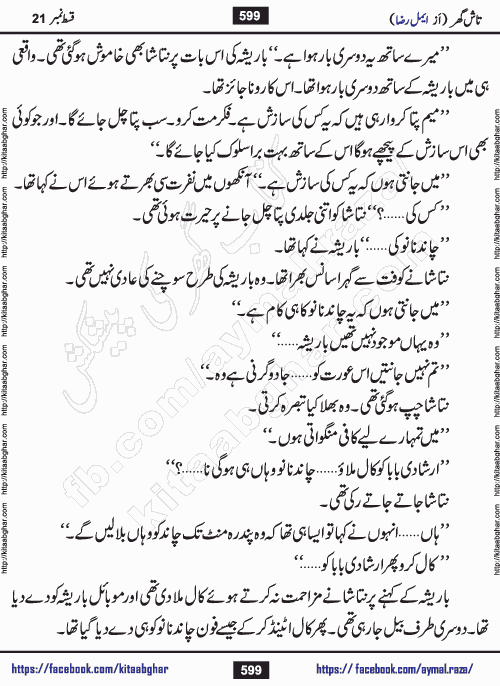 تاش گھر (از ایمل رضا)
599
قسط نمبر 21
’’میرے ساتھ یہ دوسری بار ہوا ہے۔‘‘ باریشہ کی اس بات پر نتاشا بھی خاموش ہو گئی تھی۔ واقعی
ہی میں باریشہ کے ساتھ دوسری بار ہوا تھا۔ اس کا رونا جائز تھا۔
’’میم پتا کروا رہی ہیں کہ یہ کس کی سازش ہے۔ فکر مت کرو۔ سب پتا چل جائے گا۔ اور جو کوئی
بھی اس سازش کے پیچھے ہوگا اس کے ساتھ بہت برا سلوک کیا جائے گا۔‘‘
’’میں جانتی ہوں کہ یہ کس کی سازش ہے۔‘‘ آنکھوں میں نفرت سی بھرتے ہوئے اس نے کہا تھا۔
’’کس کی......؟‘‘ نتاشا کو اتنی جلدی پتا چل جانے پر حیرت ہوئی تھی۔
’’چاند نانو کی......‘‘ باریشہ نے کہا تھا۔
نتاشا نے کوفت سے گہرا سانس بھرا تھا۔ وہ باریشہ کی طرح سوچنے کی عادی نہیں تھی۔
’’میں جانتی ہوں کہ یہ چاند نانو کا ہی کام ہے۔‘‘
’’وہ یہاں موجود نہیں تھیں باریشہ......‘‘
’’تم نہیں جانتیں اس عورت کو...... جادوگرنی ہے وہ۔‘‘
نتاشا چپ ہو گئی تھی۔ وہ بھلا کیا تبصرہ کرتی۔
’’میں تمہارے لیے کافی منگواتی ہوں۔‘‘
’’ارشادی بابا کو کال ملاؤ...... چاند نانو وہاں ہی ہوگی نا......؟‘‘
نتاشا جاتے جاتے رکی تھی۔
’’ہاں...... انہوں نے کہا تو ایسا ہی تھا کہ وہ پندرہ منٹ تک چاند کو وہاں بلا لیں گے۔‘‘
’’کال کرو پھر ارشادی بابا کو......‘‘
باریشہ کے کہنے پر نتاشا نے مزاحمت نہ کرتے ہوئے کال ملا دی تھی اور موبائل باریشہ کو دے دیا
تھا۔ دوسری طرف بیل جا رہی تھی۔ پھر کال اٹینڈ کر کے جیسے فون چاند نانو کو ہی دے دیا گیا تھا۔
https://facebook.com/kitaabghar
599
https://facebook.com/aymal.raza/
http://kitaabghar.com http://kitaabghar.com http://kitaabghar.com http://kitaabghar.com http://kitaabghar.com
http://kitaabghar.com http://kitaabghar.com http://kitaabghar.com http://kitaabghar.com http://kitaabghar.com
کتاب گھر کی پیشکش
fb.com/aymal.raza
kitaabghar.com